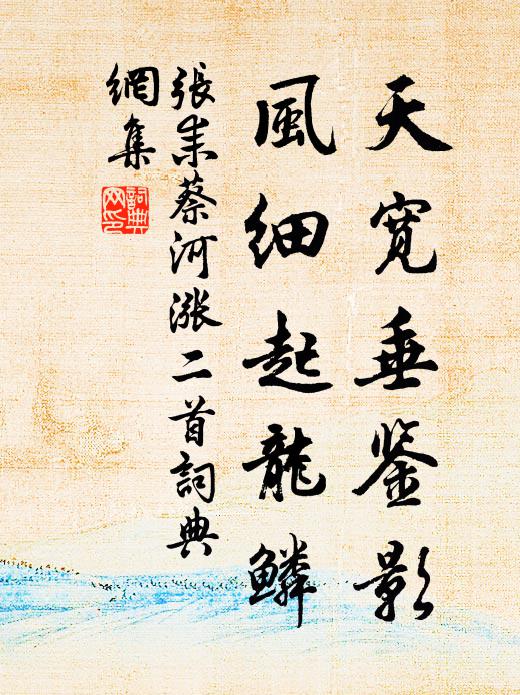 天寬垂鉴影
風细起龍鳞
張耒蔡河漲二首詞典
網集
詞典
网印